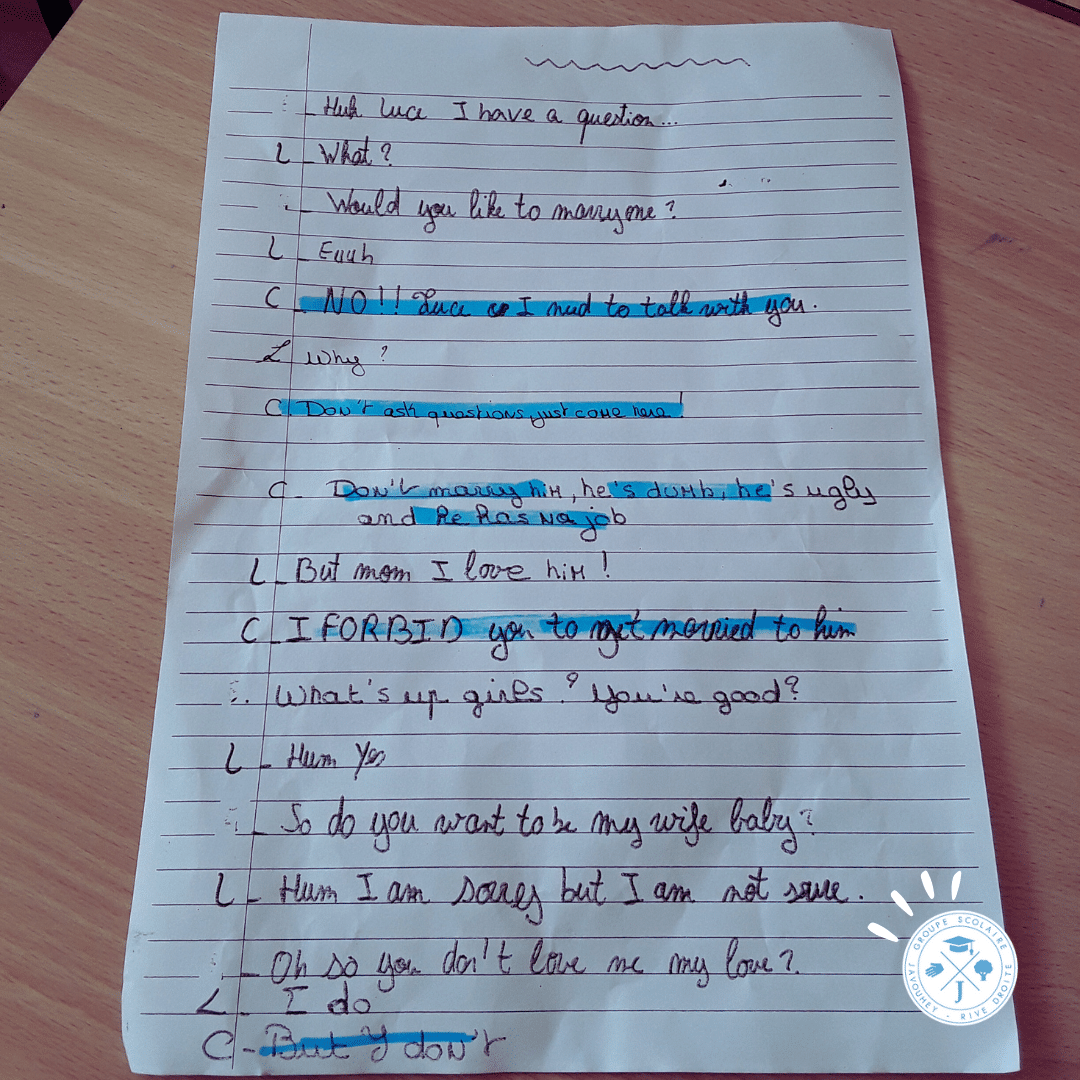 - Huh Luce I have a question...
L - What?
- Would you like to marry me?
L - Euuh
C - NO!! Luce I need to talk with you.
L Why?
C. Don't ask questions, just come here
C - Don't marry him, he's dumb, he's ugly
and he has no job
L - But mom I love him!
C - I FORBID you to get married to him
- What's up girls? You're good?
L - Hum Yes
- So do you want to be my wife baby?
L - Hum I am sorry but I am not sure.
- Oh so you don't love me my love?
L - I do
C - But I don't
GROUPE SCOLAIRE
JAVOUHEY - RIVE DROITE
J